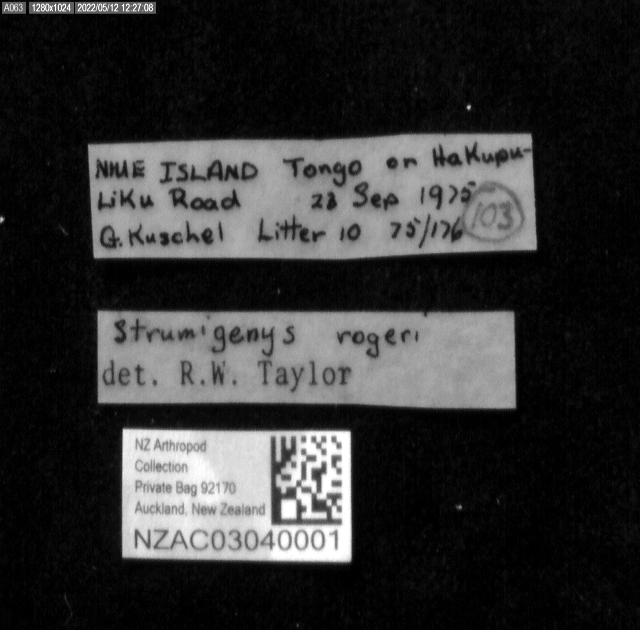 A063 1280x1024 2022/05/12 12:27:08
NIUE ISLAND Tongo on Hakupu-
Liku Road 23 Sep 1975
G. Kuschel Litter 10 75/176 103
Strumigenys rogeri
det. R.W. Taylor
NZ Arthropod
Collection
Private Bag 92170
Auckland, New Zealand
NZAC03040001